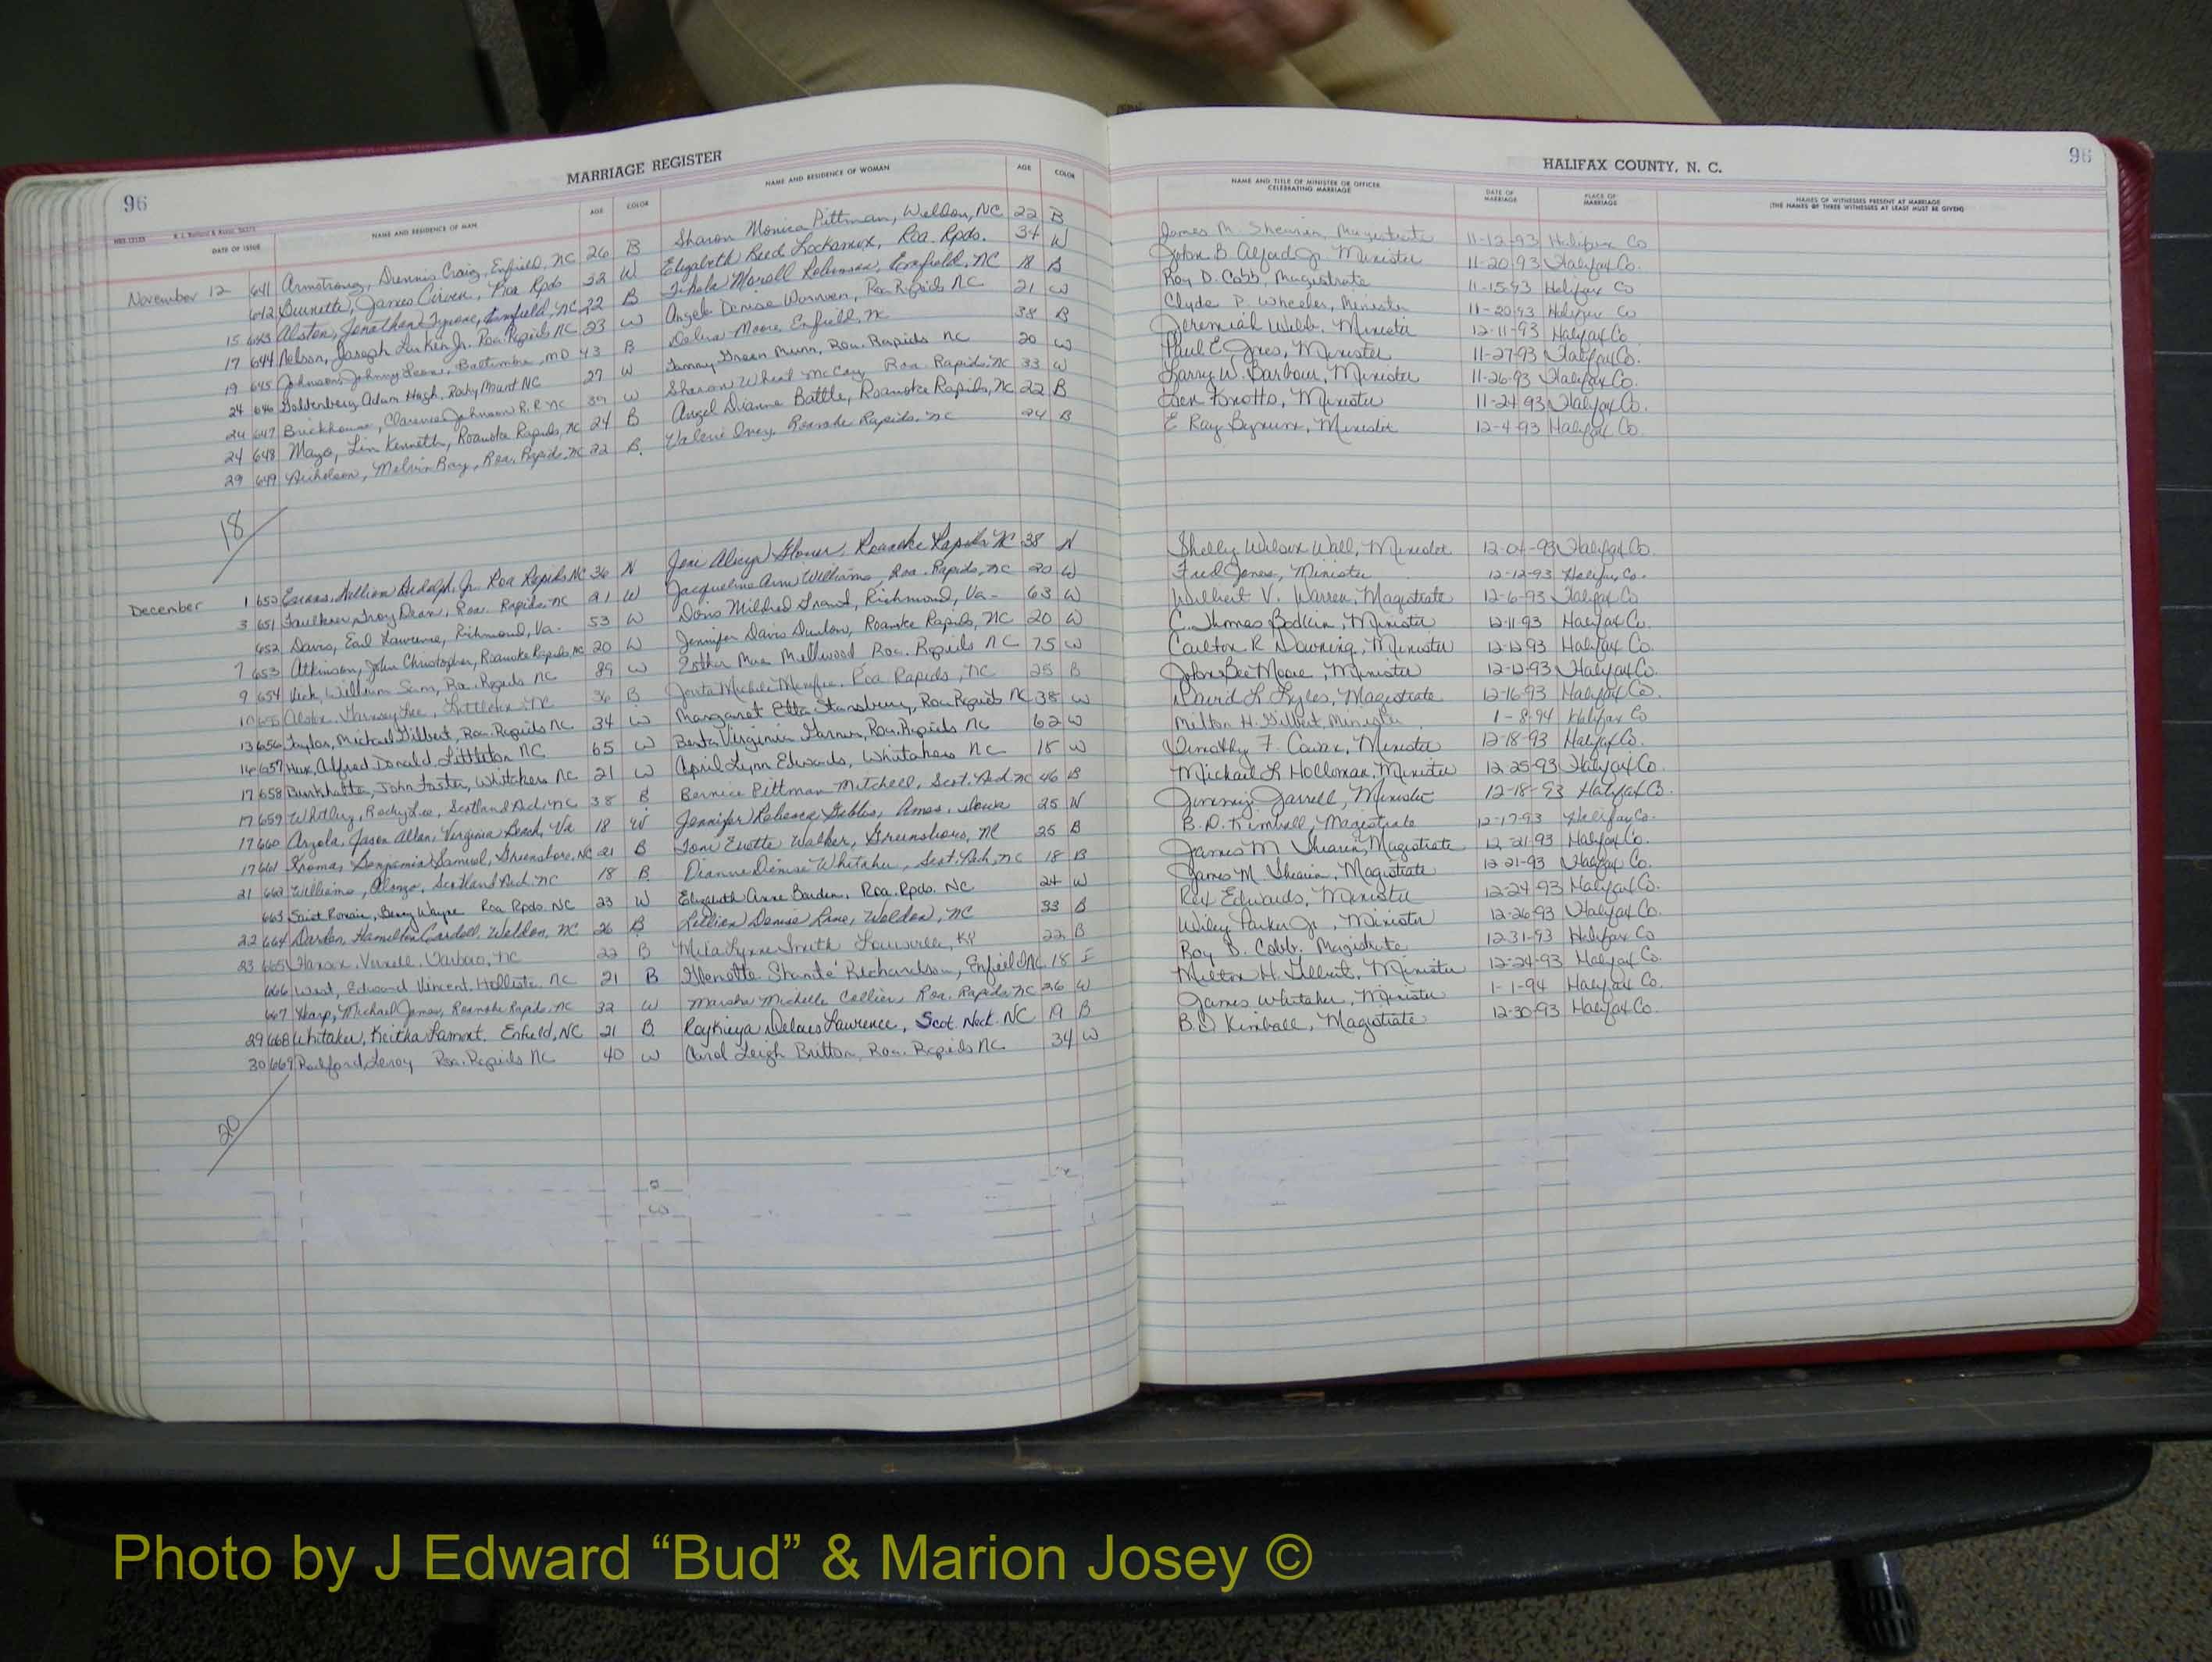 96 MARRIAGE REGISTER
HALIFAX COUNTY, N. C. 96
DATE OF ISSUE NAME AND RESIDENCE OF MAN AGE COLOR NAME AND RESIDENCE OF WOMAN AGE COLOR NAME AND TITLE OF MINISTER OR OFFICER CELEBRATING MARRIAGE DATE OF MARRIAGE PLACE OF MARRIAGE NAMES OF WITNESSES PRESENT AT MARRIAGE (THE NAMES OF THREE WITNESSES AT LEAST MUST BE GIVEN)
November 12 641 Armstrong, Dennis Craig, Enfield, NC 26 B Sharon Monica Pittman, Weldon, NC 22 B James M. Shearin, Magistrate 11-12-93 Halifax Co
642 James Roa Rpds 32 W Elizabeth Reed Roa. Rpds. 34 W John B. Alford Jr Minister 11-20-93 Halifax Co.
15 643 Alston, Jonathan Tyrone, Enfield, NC 22 B Enfield, NC 18 B Roy D. Cobb, Magistrate 11-15-93 Halifax Co
17 644 Nelson, Joseph Larkin Jr. Roa. Rapids NC 23 W Angela Denise Roa Rapids NC 21 W Clyde P. Wheeler, Minister 11-20-93 Halifax Co
19 645 Johnson, Johnny Baltimore, MD 43 B Moore, Enfield, NC 38 B Jeremiah Webb, Minister 12-11-93 Halifax Co
24 646 Goldenberg, Adam Hugh, Rocky Mount NC 27 W Tammy Green Munn, Roa. Rapids NC 20 W Paul E. Jones, Minister 11-27-93 Halifax Co.
24 647 Brickhouse, Clarence Johnson R.R NC 39 W Sharon Wheat McCoy Roa Rapids, NC 33 W Larry W. Barbour, Minister 11-26-93 Halifax Co.
24 648 Mayo, Kenneth, Roanoke Rapids, NC 24 B Angel Dianne Battle, Roanoke Rapids, NC 22 B Ken Minister 11-24-93 Halifax Co.
29 649 Nicholson, Melvin Ray, Roa. Rapids, NC 22 B. Valerie Ivey, Roanoke Rapids, NC 24 B E Ray Bynum, Minister 12-4-93 Halifax Co.
18
December 1 650 Evans, Jr. Roa Rapids NC 36 N Roanoke Rapids NC 38 N Shelly Wilson Wall, Minister 12-04-93 Halifax Co.
3 651 Faulkner, Troy Dean, Roa. Rapids, NC 21 W Jacqueline Ann Williams, Roa. Rapids, NC 20 W Fred Jones, Minister 12-12-93 Halifax Co.
652 Davis, Earl Lawrence, Richmond, Va. 53 W Doris Mildred Richmond, Va. 63 W Wilbert V. Warren, Magistrate 12-6-93 Halifax Co
7 653 Atkinson, John Christopher, Roanoke Rapids, NC 20 W Jennifer Davis Dunlow, Roanoke Rapids, NC 20 W C. Thomas Bodkin, Minister 12-11-93 Halifax Co.
9 654 Vick, William Sam, Roa. Rapids NC 89 W Esther Mae Roa. Rapids NC 75 W Carlton R Downing, Minister 12-12-93 Halifax Co.
10 655 Littleton NC 36 B Roa Rapids, NC 25 B John Moore, Minister 12-12-93 Halifax Co.
13 656 Taylor, Michael Gilbert, Roa. Rapids NC 34 W Margaret Etta Stansbury, Roa Rapids NC 38 W David L Lyles, Magistrate 12-16-93 Halifax Co.
16 657 Hux, Alfred Donald, Littleton NC 65 W Virginia Garner, Roa. Rapids NC 62 W Milton H. Gilbert, Minister 1-8-94 Halifax Co
17 658 John Foster, Whitakers NC 21 W April Lynn Edwards, Whitakers NC 18 W Timothy F. Minister 12-18-93 Halifax Co.
17 659 Rocky Lee, Scotland Neck NC 38 B Bernice Pittman Mitchell, Scot. Neck NC 46 B Michael L Holloman, Minister 12-25-93 Halifax Co.
17 660 Arzola, Jason Allan, Virginia Beach, Va 18 W Jennifer Rebecca Ames, Iowa 25 W Jimmy Jarrell, Minister 12-18-93 Halifax Co.
17 661 Thomas Benjamin Samuel, Greensboro, NC 21 B Toni Walker, Greensboro, NC 25 B B. D. Kimball, Magistrate 12-17-93 Halifax Co.
21 662 Williams, Alonzo, Scotland Neck, NC 18 B. Dianne Denise Whitaker, Scot. Neck, NC 18 B James M Shearin, Magistrate 12-21-93 Halifax Co.
663 Saint Romain, Wayne Roa Rpds. NC 23 W Elizabeth Anne Barden, Roa. Rpds. NC 24 W James M. Shearin, Magistrate 12-21-93 Halifax Co.
22 664 Darden, Hamilton Cardell, Weldon, NC 26 B Lillian Denise Weldon, NC 33 B Rex Edwards, Minister 12-24-93 Halifax Co.
23 665 Tarboro, NC 22 B Smith Louisville, KY 22 B Wiley Parker Jr, Minister 12-26-93 Halifax Co.
666 West, Edward Vincent, Hollister NC 21 B Shante' Richardson, Enfield NC 18 I Roy D. Cobb, Magistrate 12-31-93 Halifax Co
667 Harp, Michael James, Roanoke Rapids, NC 32 W Marsha Michelle Collier, Roa. Rapids NC 26 W Milton H. Gilbert, Minister 12-24-93 Halifax Co.
29 668 Whitaker, Keitha Lamont, Enfield, NC 21 B. Delores Lawrence, Scot. Neck. NC 19 B James Whitaker, Minister 1-1-94 Halifax Co.
30 669 Radford, Leroy Roa. Rapids NC 40 W Carol Leigh Britton, Roa. Rapids NC 34 W B. D Kimball, Magistrate 12-30-93 Halifax Co.
20
Photo by J Edward “Bud” & Marion Josey ©